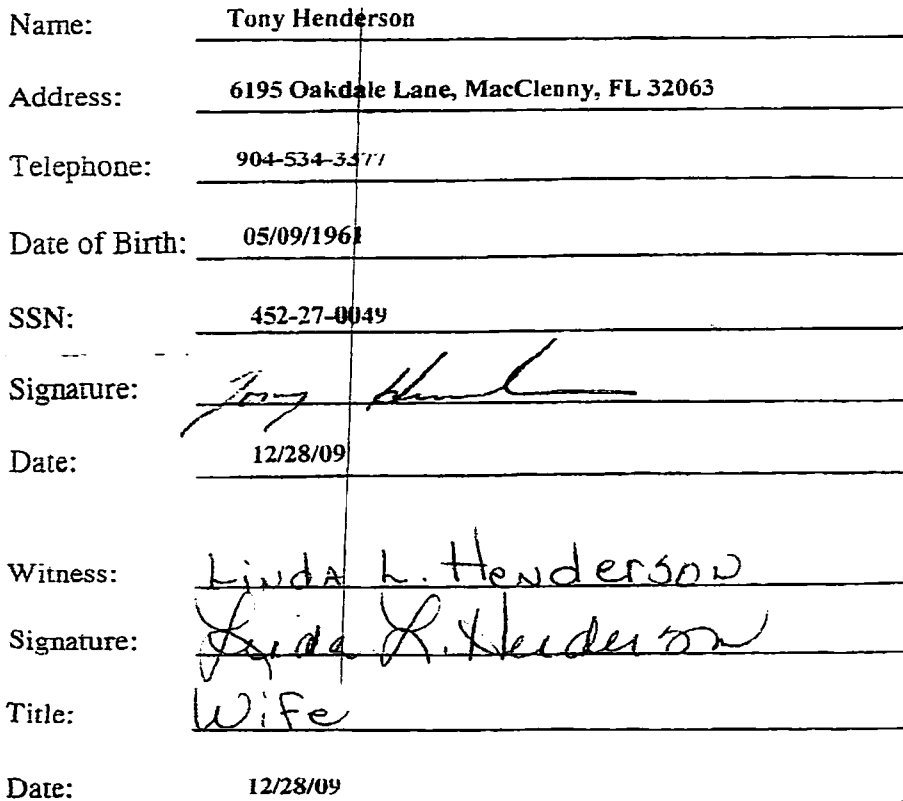 Name: Tony Henderson
Address: 6195 Oakdale Lane, MacClenny, FL 32063
Telephone: 904-534-3377
Date of Birth: 05/09/1961
SSN: 452-27-0049
Signature: Tony
Date: 12/28/09
Witness: Linda L. Henderson
Signature: Linda L. Henderson
Title: Wife
Date: 12/28/09